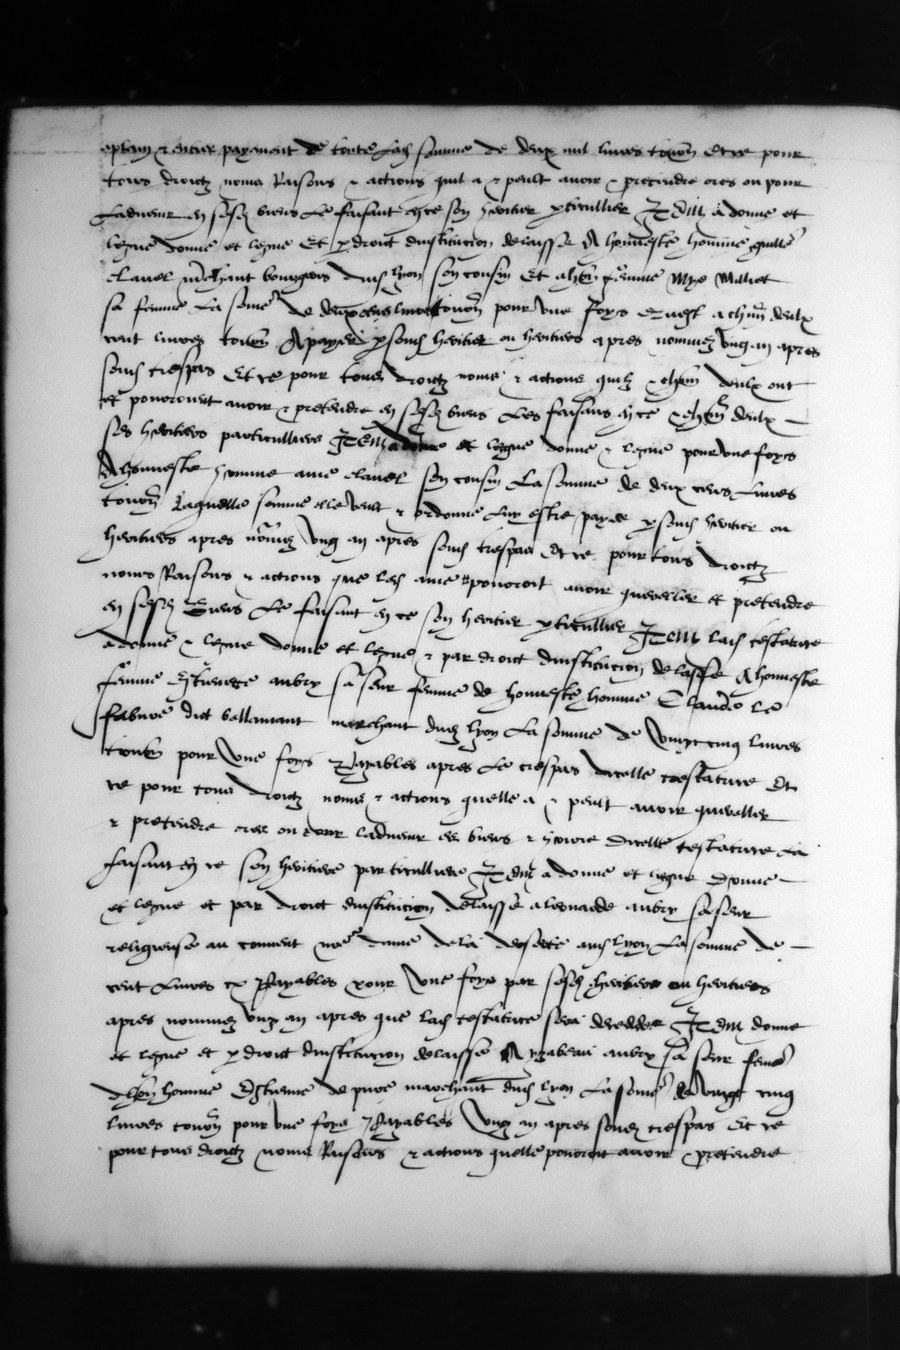 et entier payement de toute lad somme de deux mil livres tourn Et ce pour
tous droictz noms Raisons & actions quil a & peult avoir & pretendre ores ou pour
ladvenir en sesd biens Le faisant en ce son heritier pticullier Item a donne et
legue donne et legue Et p droict dinstitucion delaisse A honneste homme guille
Clavel mchant bourgeois dud lyon son cousin Et a femme
sa femme La some de deux cens livres tourn pour une foys a chun deulx
cent livres tourn A payer p sond heritier ou heritiers apres nommez ung an apres
sond trespas Et ce pour tous droictz noms & actions quilz & chun deulx ont
et pourroient avoir & pretendre en sesd biens Les faisans en ce & chun deulx
ses heritiers particulliers Item a donne et legue donne & legue pour une foys
A honneste homme ame Clavel son cousin La somme de deux cens Livres
tourn Laquelle somme elle veult & ordonne luy estre payee p sond heritier ou
heritiers apres nomez ung an apres sond trespas Et ce pour tous droictz
noms Raisons & actions que led ame pourroit avoir quereller et pretendre
en sesd biens Le faisant en ce son heritier pticullier Item lad testatrice
a donne & legue donne et legue & par droict dinstitucion delaisse A honneste
femme aubry sa seur femme de honneste homme Claude Le
fabvre dict marchant dud lyon La somme de vingt cinq livres
tourn pour une foys Payables apres Le trespas dicelle testatrice Et
ce pour tous droictz noms & actions quelle a & peult avoir quereller
& pretendre ores ou pour ladvenir es biens & hoirie dicelle testatrice La
faisant en ce son heritiere particulliere Item a donne et legue donne
et legue et par droict dinstitucion delaisse a leonarde aubry sa seur
religieuse au convent nre dame de la deserte aud lyon La somme de
cent Livres Payables pour une foys par sesd heritier ou heritiers
apres nommez ung an apres que lad testatrice sera decedee Item donne
et legue et p droict dinstitucion delaisse A ysabeau aubry sa seur feme
homme Estienne marchant dud lyon La some de vingt cinq
livres tourn pour une foys Payables ung an apres sond trespas Et ce
pour tous droictz noms Raisons & actions quelle pourroit avoir pretendre